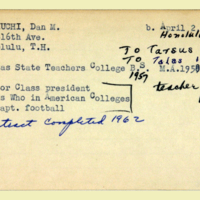 UCHI, Dan M. b. April 2
16th Ave. Honolulu
lulu, T.H. To Tarsus
To Talas
as State Teachers College B.S. M.A. 1958
1957
or Class president teacher
s Who in American Colleges
apt. football
tract completed 1962